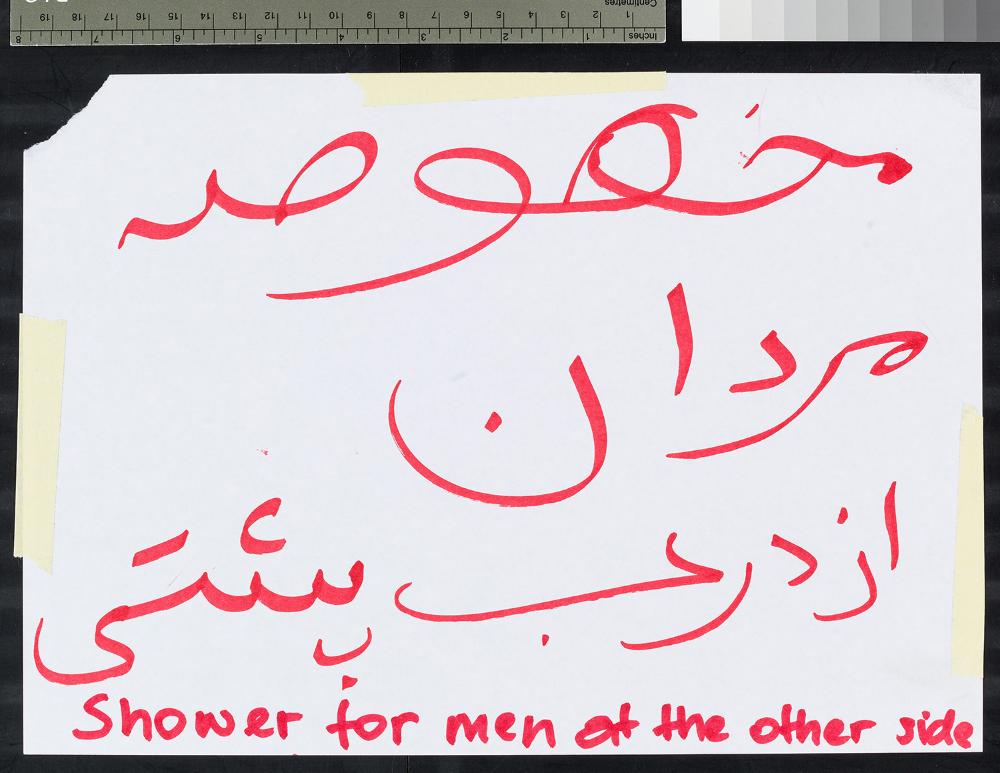 Centimetres 1 2 3 4 5 6 7 8 9 10 11 12 13 14 15 16 17 18 19
Inches 1 2 3 4 5 6 7 8
مخصوص
مردان
از درب پشتی
Shower for men at the other side